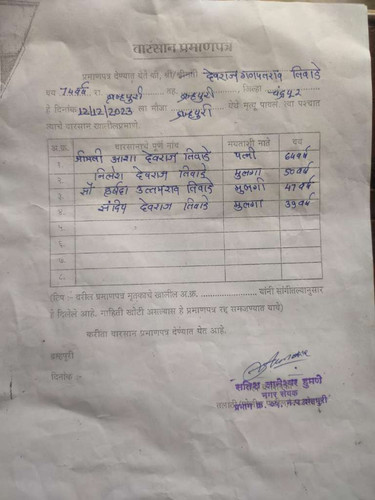 वारसान प्रमाणपत्र
प्रमाणपत्र देण्यात येते की, श्री/श्रीमती देवराज गणपतराव तिवाडे
वय 74 वर्ष रा. ब्रम्हपुरी तह. ब्रम्हपुरी जिल्हा चंद्रपूर
हे दिनांक 12/12/2023 ला मौजा ब्रम्हपुरी येथे मृत्यू पावले. त्या पश्चात
त्याचे वारसान खालीलप्रमाणे.
अ.क्र. वारसानाचे पुर्ण नांव मयताशी नाते वय
१ श्रीमती आशा देवराज तिवाडे पत्नी 64 वर्ष
२ निलेश देवराज तिवाडे मुलगा 50 वर्ष
३ सौ उत्तमराव तिवाडे मुलगी 47 वर्ष
४ संदिप देवराज तिवाडे मुलगा 39 वर्ष
५
६
७
८
(टिप :- वरील प्रमाणपत्र मृतकाचे खालील अ.क्र. .......................... यांनी सांगीतल्यानुसार
हे दिलेले आहे. माहिती खोटी असल्यास हे प्रमाणपत्र रद्द समजण्यात यावे)
करीता वारसान प्रमाणपत्र देण्यात येत आहे.
ब्रम्हपुरी
दिनांक :-
नगर सेवक